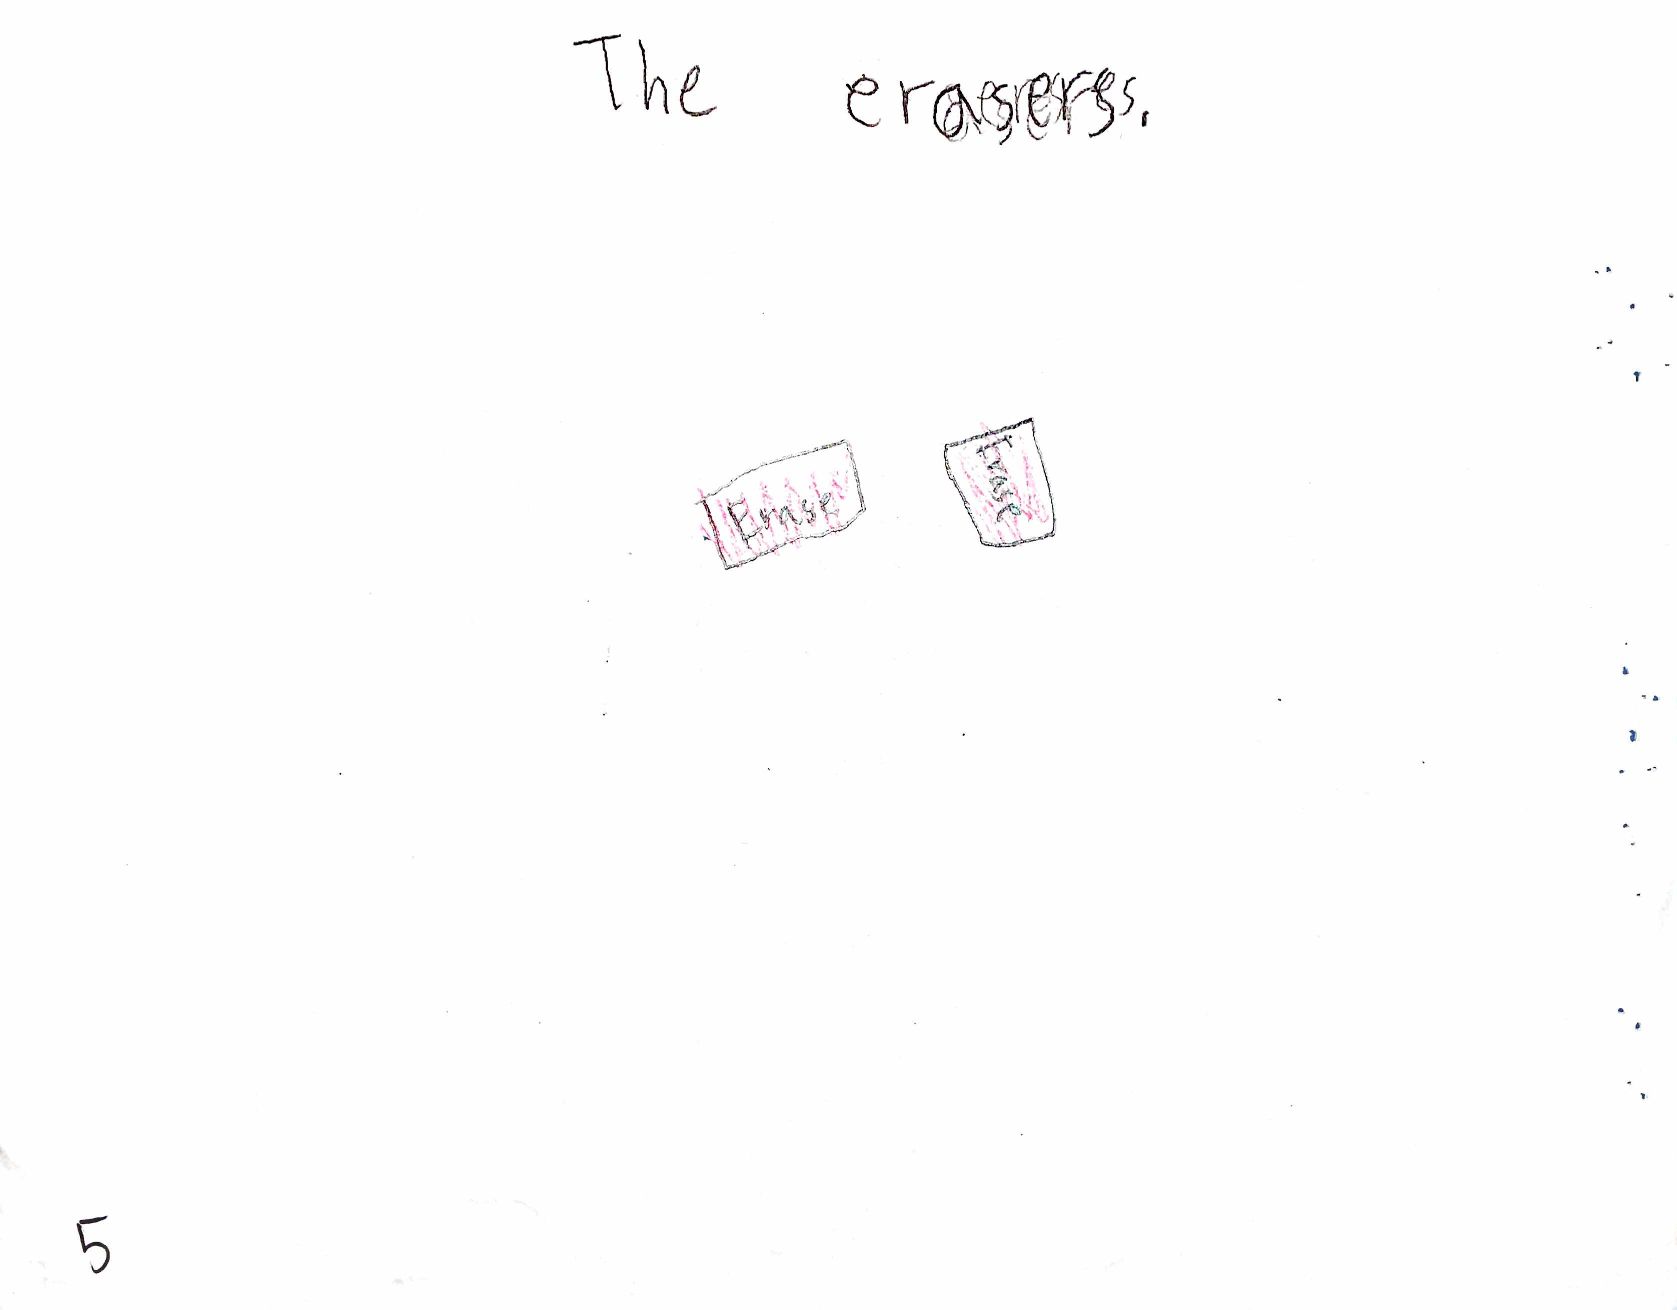 The erasers.
Erase
Erase
5